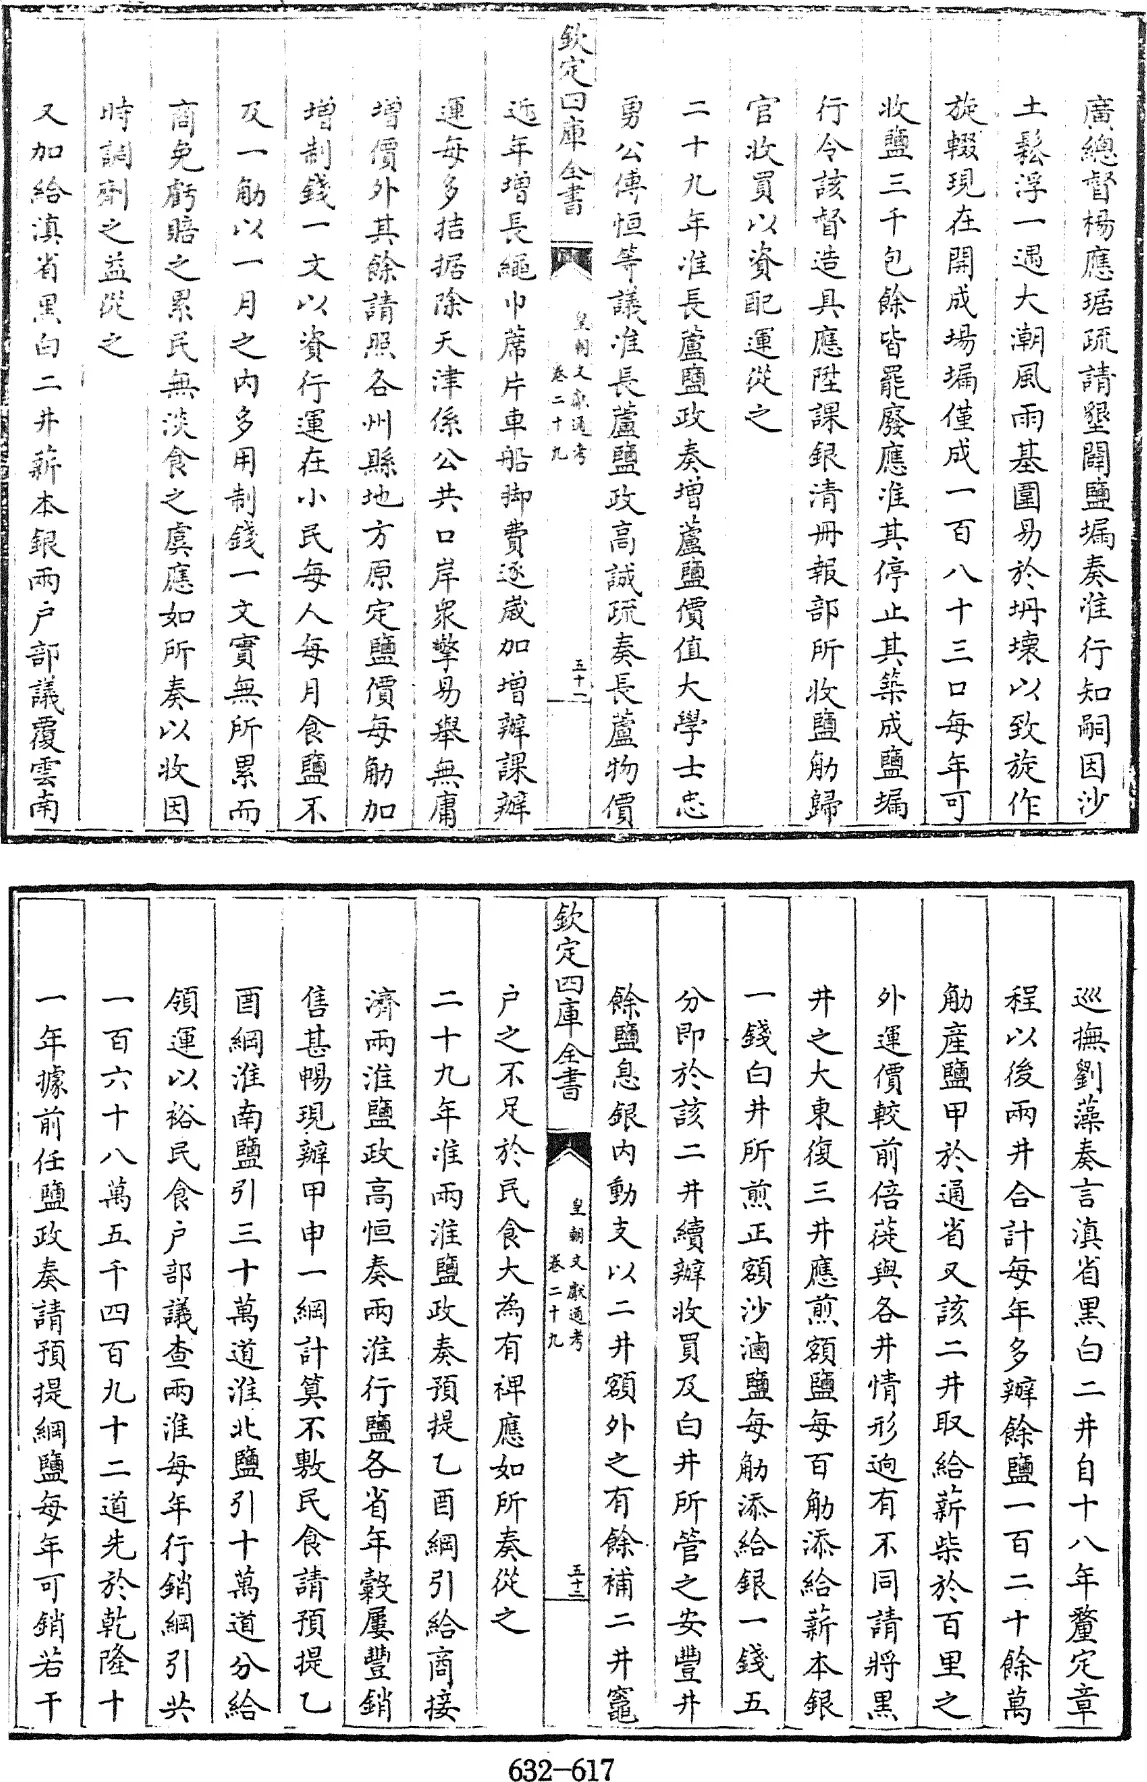 廣總督楊應琚疏請墾闢鹽塥奏准行知嗣因沙
土鬆浮一遇大潮風雨基圍易於坍壞以致旋作
旋輟現在開成塲塥僅成一百八十三口每年可
收鹽三千包餘皆罷廢應准其停止其築成鹽塥
行令該督造具應陞課銀清冊報部所收鹽觔歸
官收買以資配運從之
二十九年准長蘆鹽政奏增蘆鹽價值大學士忠
勇公傅恒等議准長蘆鹽政高誠疏奏長蘆物價
欽定四庫全書
皇朝文獻通考
卷二十九
五十一
近年增長繩巾蓆片車船脚費逐歲加增辦課辦
運每多拮据除天津係公共口岸衆擎易舉無庸
增價外其餘請照各州縣地方原定鹽價每觔加
增制錢一文以資行運在小民每人每月食鹽不
及一觔以一月之内多用制錢一文實無所累而
商免虧賠之累民無淡食之虞應如所奏以收因
時調劑之益從之
又加給滇省黑白二井薪本銀兩户部議覆雲南
巡撫劉藻奏言滇省黑白二井自十八年釐定章
程以後兩井合計每年多辦餘鹽一百二十餘萬
觔産鹽甲於通省又該二井取給薪柴於百里之
外運價較前倍蓰與各井情形逈有不同請將黑
井之大東復三井應煎額鹽每百觔添給薪本銀
一錢白井所煎正額沙滷鹽每觔添給銀一錢五
分即於該二井續辦收買及白井所管之安豐井
餘鹽息銀内動支以二井額外之有餘補二井竈
欽定四庫全書
皇朝文獻通考
卷二十九
五十二
户之不足於民食大為有裨應如所奏從之
二十九年准兩淮鹽政奏預提乙酉綱引給商接
濟兩淮鹽政高恒奏兩淮行鹽各省年穀屢豐銷
售甚暢現辦甲申一綱計算不敷民食請預提乙
酉綱淮南鹽引三十萬道淮北鹽引十萬道分給
領運以裕民食户部議查兩淮每年行銷綱引共
一百六十八萬五千四百九十二道先於乾隆十
一年據前任鹽政奏請預提綱鹽每年可銷若干
632-617